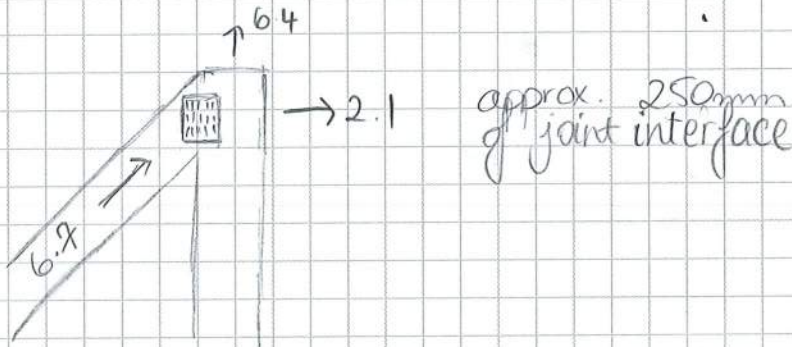 6.4
→ 2.1
approx. 250mm
of joint interface
6.7